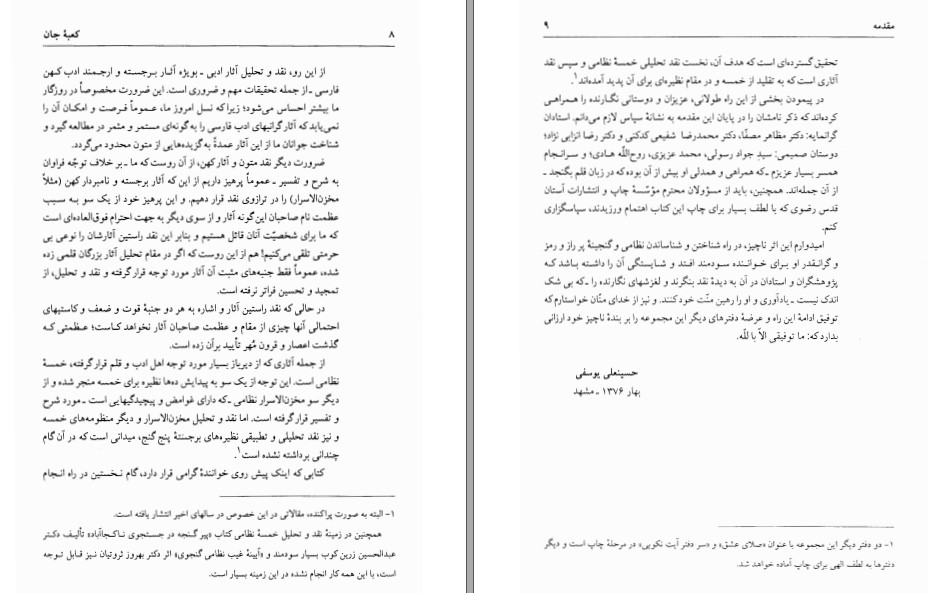 ۸
کعبهٔ جان
از این رو، نقد و تحلیل آثار ادبی ـ بویژه آثار برجسته و ارجمند ادب کهن
فارسی ـ از جمله تحقیقات مهم و ضروری است. این ضرورت مخصوصاً در روزگار
ما بیشتر احساس می‌شود؛ زیرا که نسل امروز ما، عموماً فرصت و امکان آن را
نمی‌یابد که آثار گرانبهای ادب فارسی را به‌گونه‌ای مستمر و مثمر در مطالعه گیرد و
شناخت جوانان ما از این آثار عمدةً به گزیده‌هایی از متون محدود می‌گردد.
ضرورت دیگر نقد متون و آثار کهن، از آن روست که ما ـ بر خلاف توجّه فراوان
به شرح و تفسیر ـ عموماً پرهیز داریم از این که آثار برجسته و نامبردار کهن (مثلاً
مخزن‌الاسرار) را در ترازوی نقد قرار دهیم. و این پرهیز خود از یک سو به سبب
عظمت نام صاحبان این‌گونه آثار و از سوی دیگر به جهت احترام فوق‌العاده‌ای است
که ما برای شخصیّت آنان قائل هستیم و بنابر این نقد راستین آثارشان را نوعی بی
حرمتی تلقی می‌کنیم! هم از این روست که اگر در مقام تحلیل آثار بزرگان قلمی زده
شده، عموماً فقط جنبه‌های مثبت آن آثار مورد توجه قرار گرفته و نقد و تحلیل، از
تمجید و تحسین فراتر نرفته است.
در حالی که نقد راستین آثار و اشاره به هر دو جنبهٔ قوت و ضعف و کاستیهای
احتمالی آنها چیزی از مقام و عظمت صاحبان آثار نخواهد کاست؛ عظمتی که
گذشت اعصار و قرون مُهر تأیید بر آن زده است.
از جمله آثاری که از دیرباز بسیار مورد توجه اهل ادب و قلم قرار گرفته، خمسهٔ
نظامی است. این توجه از یک سو به پیدایش ده‌ها نظیره برای خمسه منجر شده و از
دیگر سو مخزن‌الاسرار نظامی ـ که دارای غوامض و پیچیدگیهایی است ـ مورد شرح
و تفسیر قرار گرفته است. اما نقد و تحلیل مخزن‌الاسرار و دیگر منظومه‌های خمسه
و نیز نقد تحلیلی و تطبیقی نظیره‌های برجستهٔ پنج گنج، میدانی است که در آن گام
چندانی برداشته نشده است۱.
کتابی که اینک پیش روی خوانندهٔ گرامی قرار دارد، گام نخستین در راه انجام
۱- البته به صورت پراکنده، مقالاتی در این خصوص در سالهای اخیر انتشار یافته است.
همچنین در زمینهٔ نقد و تحلیل خمسهٔ نظامی کتاب «پیر گنجه در جستجوی ناکجاآباد» تألیف دکتر
عبدالحسین زرین کوب بسیار سودمند و «آیینهٔ غیب نظامی گنجوی» اثر دکتر بهروز ثروتیان نیز قابل توجه
است، با این همه کار انجام نشده در این زمینه بسیار است.
مقدمه
۹
تحقیق گسترده‌ای است که هدف آن، نخست نقد تحلیلی خمسهٔ نظامی و سپس نقد
آثاری است که به تقلید از خمسه و در مقام نظیره‌ای برای آن پدید آمده‌اند۱.
در پیمودن بخشی از این راه طولانی، عزیزان و دوستانی نگارنده را همراهی
کرده‌اند که ذکر نامشان را در پایان این مقدمه به نشانهٔ سپاس لازم می‌دانم. استادان
گرانمایه: دکتر مظاهر مصفّا، دکتر محمدرضا شفیعی کدکنی و دکتر رضا انزابی نژاد؛
دوستان صمیمی: سید جواد رسولی، محمد عزیزی، روح‌اللّه هادی؛ و سرانجام
همسر بسیار عزیزم ـ که همراهی و همدلی او بیش از آن بوده که در زبان قلم بگنجد ـ
از آن جمله‌اند. همچنین، باید از مسؤولان محترم مؤسّسهٔ چاپ و انتشارات آستان
قدس رضوی که با لطف بسیار برای چاپ این کتاب اهتمام ورزیدند، سپاسگزاری
کنم.
امیدوارم این اثر ناچیز، در راه شناختن و شناساندن نظامی و گنجینهٔ پر راز و رمز
و گرانقدر او برای خواننده سودمند افتد و شایستگی آن را داشته باشد که
پژوهشگران و استادان در آن به دیدهٔ نقد بنگرند و لغزشهای نگارنده را ـ که بی شک
اندک نیست ـ یادآوری و او را رهین منّت خود کنند. و نیز از خدای منّان خواستارم که
توفیق ادامهٔ این راه و عرضهٔ دفترهای دیگر این مجموعه را بر بندهٔ ناچیز خود ارزانی
بدارد که: ما توفیقی الاّ باللّه.
حسینعلی یوسفی
بهار ۱۳۷۶ ـ مشهد
۱- دو دفتر دیگر این مجموعه با عنوان «صلای عشق» و «سر دفتر آیت نکویی» در مرحلهٔ چاپ است و دیگر
دفترها به لطف الهی برای چاپ آماده خواهد شد.